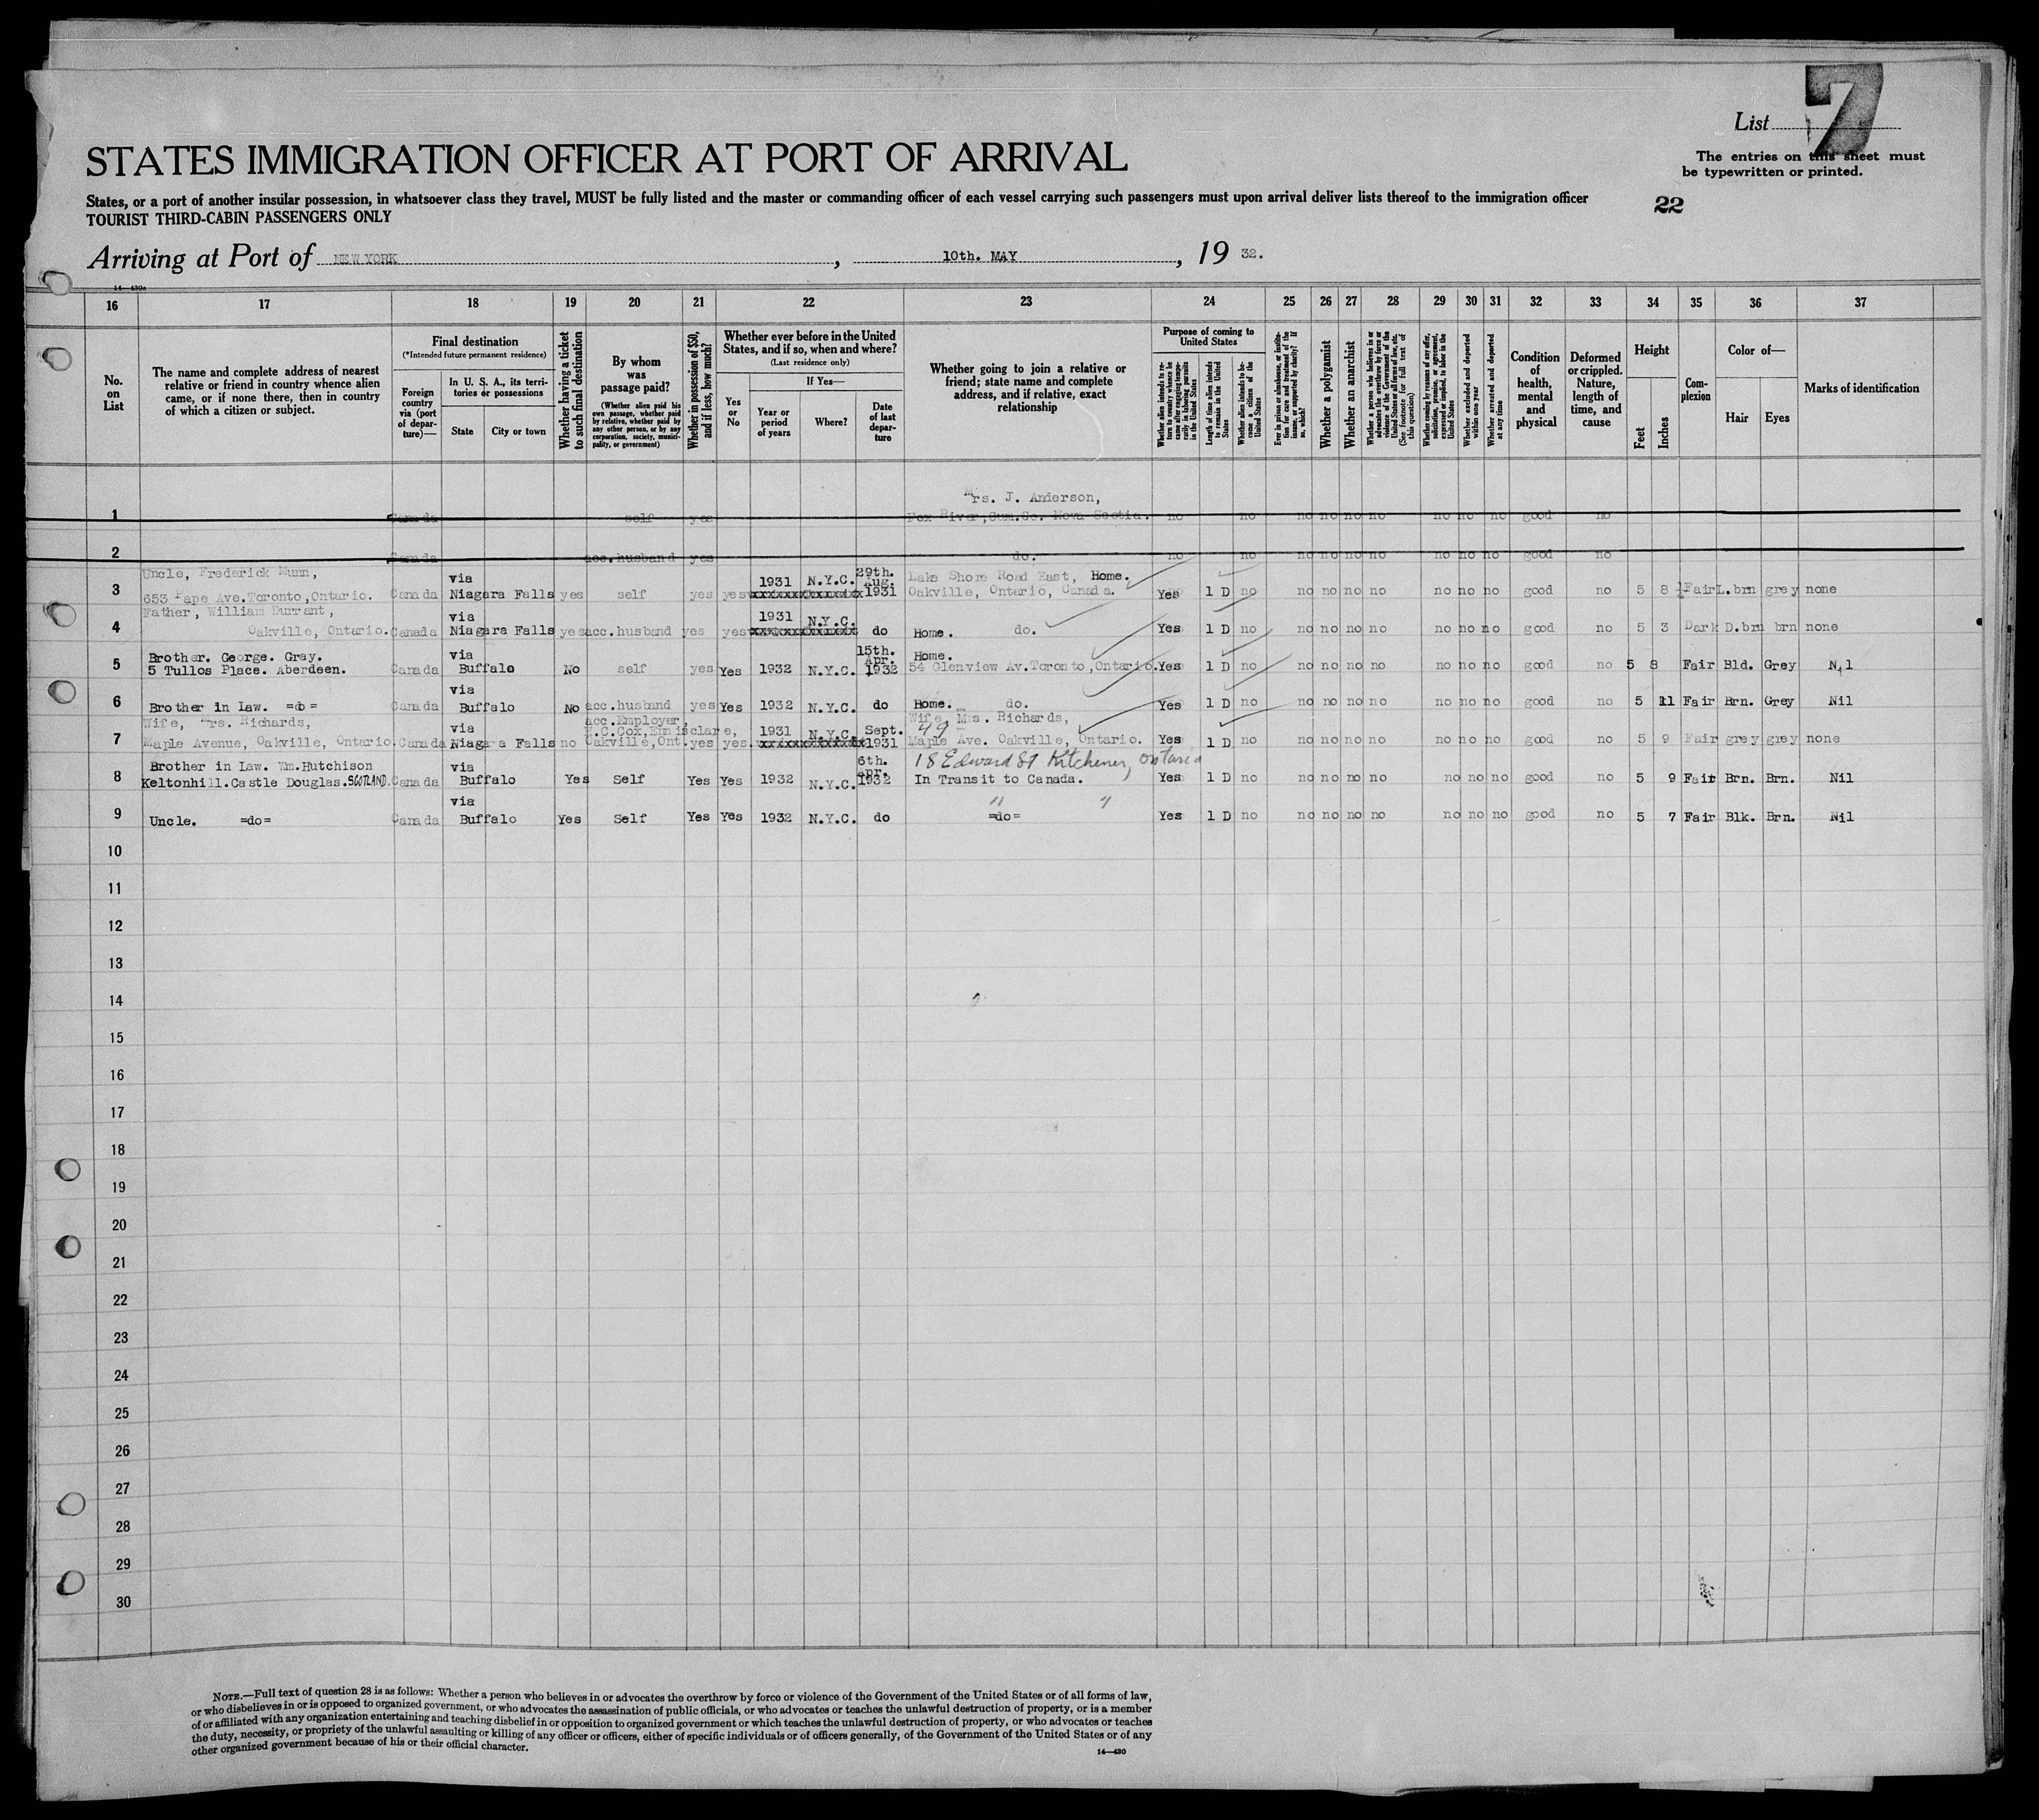 List 7
STATES IMMIGRATION OFFICER AT PORT OF ARRIVAL
The entries on this sheet must
be typewritten or printed.
States, or a port of another insular possession, in whatsoever class they travel, MUST be fully listed and the master or commanding officer of each vessel carrying such passengers must upon arrival deliver lists thereof to the immigration officer
22
TOURIST THIRD-CABIN PASSENGERS ONLY
Arriving at Port of NEW YORK, 10th. MAY, 19 32.
14—430a
16 17 18 19 20 21 22 23 24 25 26 27 28 29 30 31 32 33 34 35 36 37
No.
on
List
The name and complete address of nearest
relative or friend in country whence alien
came, or if none there, then in country
of which a citizen or subject.
Final destination
(*Intended future permanent residence)
Foreign
country
via (port
of depar-
ture)—
In U. S. A., its terri-
tories or possessions
State
City or town
Whether having a ticket
to such final destination
By whom
was
passage paid?
(Whether alien paid his
own passage, whether paid
by relative, whether paid by
any other person, or by any
corporation, society, munici-
pality, or government)
Whether in possession of $50,
and if less, how much?
Whether ever before in the United
States, and if so, when and where?
(Last residence only)
Yes
or
No
If Yes—
Year or
period
of years
Where?
Date
of last
depar-
ture
Whether going to join a relative or
friend; state name and complete
address, and if relative, exact
relationship
Purpose of coming to
United States
Whether alien intends to re-
turn to country whence he
came after engaging tempo-
rarily in laboring pursuits
in the United States
Length of time alien intends
to remain in the United
States
Whether alien intends to be-
come a citizen of the
United States
Ever in prison or almshouse, or institu-
tion for care and treatment of the
insane, or supported by charity? If
so, which?
Whether a polygamist
Whether an anarchist
Whether a person who believes in or
advocates the overthrow by force or
violence of the Government of the
United States or all forms of law, etc.
(See footnote for full text of
this question)
Whether coming by reasons of any offer,
solicitation, promise, or agreement,
expressed or implied, to labor in the
United States
Whether excluded and deported
within one year
Whether arrested and deported
at any time
Condition
of
health,
mental
and
physical
Deformed
or crippled.
Nature,
length of
time, and
cause
Height
Feet
Inches
Com-
plexion
Color of—
Hair
Eyes
Marks of identification
Mrs. J. Anderson,
1 Canada self yes Fox River, Cum.Co. Nova Scotia. no no no no no no no no no good no
2 Canada acc.husband yes do. no no no no no no no no no good no
Uncle, Frederick Munn, via 1931 N.Y.C. 29th. Aug. Lake Shore Road East, Home.
3 653 Pape Ave.Toronto,Ontario. Canada Niagara Falls yes self yes yes 1931 Oakville, Ontario, Canada. Yes 1 D no no no no no no no no good no 5 8½ Fair L.brn grey none
Father, William Durrant, via 1931 N.Y.C.
4 Oakville, Ontario. Canada Niagara Falls yes acc.husband yes yes do Home. do. Yes 1 D no no no no no no no no good no 5 3 Dark D.brn brn none
Brother. George. Gray. via 15th. Apr. Home.
5 5 Tullos Place. Aberdeen. Canada Buffalo No self yes Yes 1932 N.Y.C. 1932 54 Glenview Av.Toronto,Ontario. Yes 1 D no no no no no no no no good no 5 8 Fair Bld. Grey Nil
via
6 Brother in Law. =do= Canada Buffalo No acc.husband yes Yes 1932 N.Y.C. do Home. do. Yes 1 D no no no no no no no no good no 5 11 Fair Brn. Grey Nil
Wife, Mrs. Richards, via acc.Employer, H.C.Cox,Ennisclare, 1931 N.Y.C. Sept. Wife, Mrs. Richards, 49
7 Maple Avenue, Oakville, Ontario. Canada Niagara Falls no Oakville,Ont. yes yes 1931 Maple Ave. Oakville, Ontario. Yes 1 D no no no no no no no no good no 5 9 Fair grey grey none
Brother in Law. Wm.Hutchison via 6th. Apr. 18 Edward St Kitchener, Ontario
8 Keltonhill.Castle Douglas.SCOTLAND. Canada Buffalo Yes Self Yes Yes 1932 N.Y.C. 1932 In Transit to Canada. Yes 1 D no no no no no no no no good no 5 9 Fair Brn. Brn. Nil
via " "
9 Uncle. =do= Canada Buffalo Yes Self Yes Yes 1932 N.Y.C. do =do= Yes 1 D no no no no no no no no good no 5 7 Fair Blk. Brn. Nil
10
11
12
13
14
15
16
17
18
19
20
21
22
23
24
25
26
27
28
29
30
NOTE.—Full text of question 28 is as follows: Whether a person who believes in or advocates the overthrow by force or violence of the Government of the United States or of all forms of law,
or who disbelieves in or is opposed to organized government, or who advocates the assassination of public officials, or who advocates or teaches the unlawful destruction of property, or is a member
of or affiliated with any organization entertaining and teaching disbelief in or opposition to organized government or which teaches the unlawful destruction of property, or who advocates or teaches
the duty, necessity, or propriety of the unlawful assaulting or killing of any officer or officers, either of specific individuals or of officers generally, of the Government of the United States or of any
other organized government because of his or their official character.
14—430